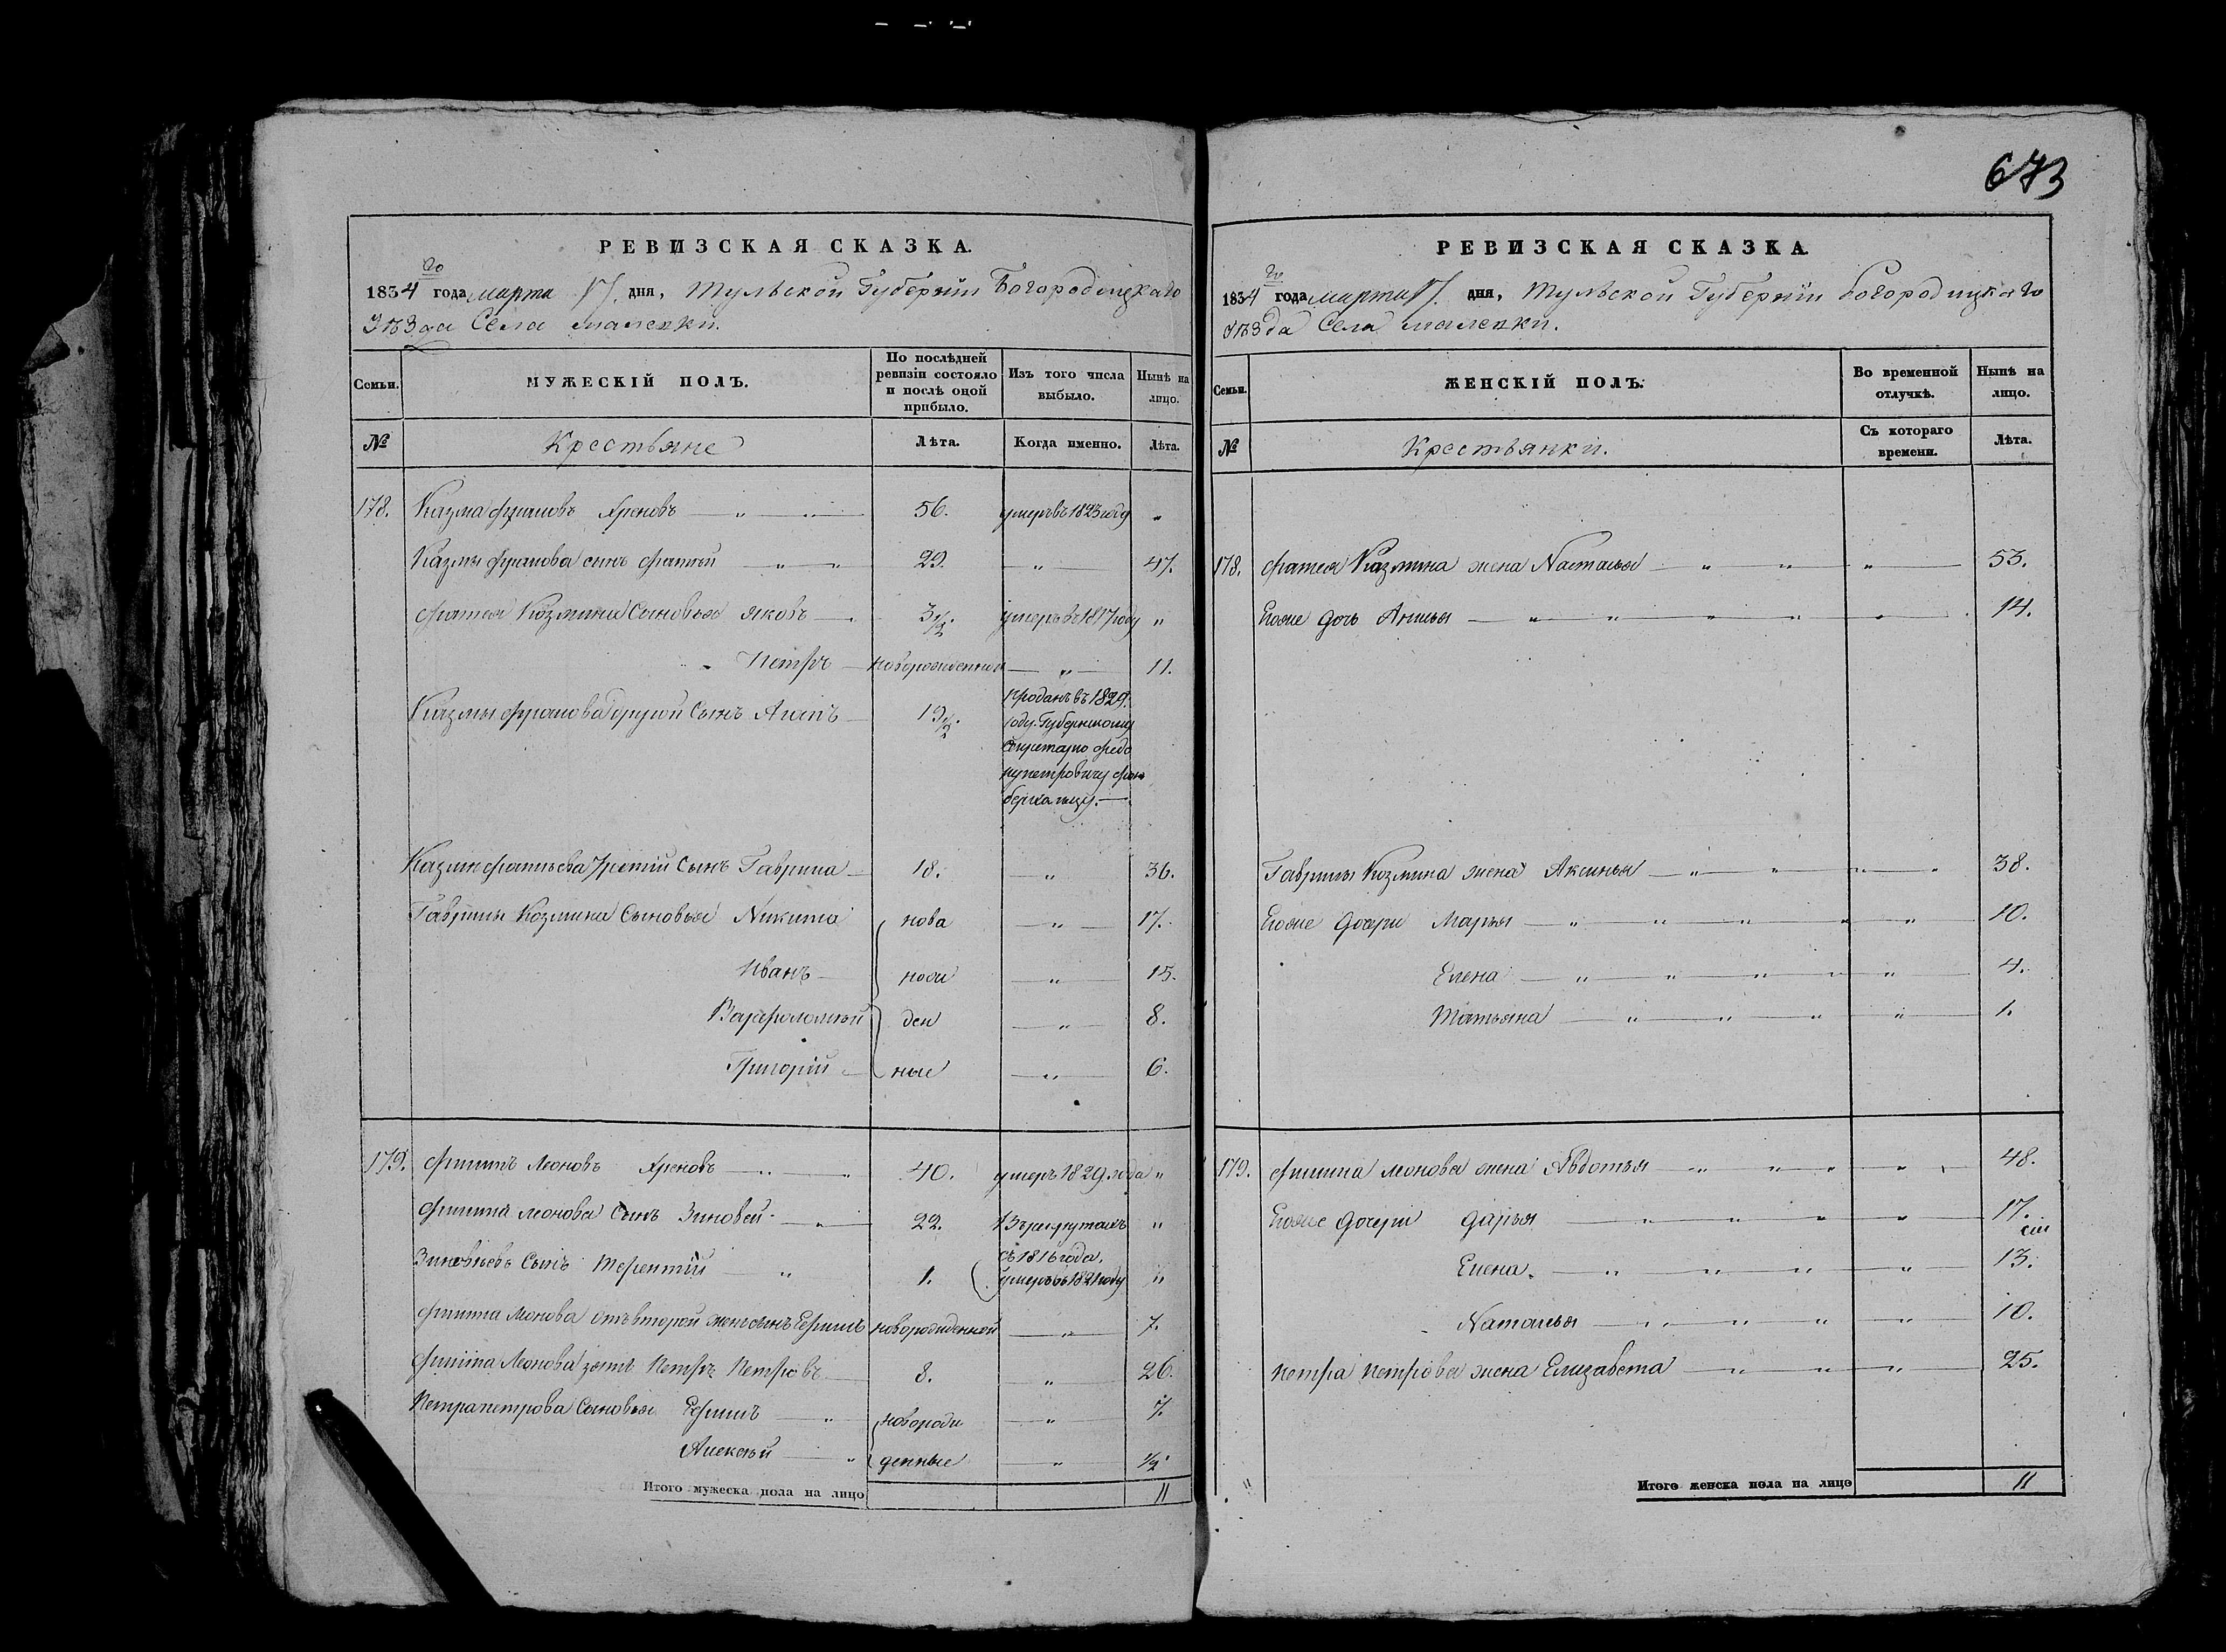 673
РЕВИЗСКАЯ СКАЗКА.
1834 го года марта 17. дня, Тульской Губернiи Богородицкаго
Уѣзда Села малевки.
Семьи.
МУЖЕСКIЙ ПОЛЪ.
По послѣдней ревизiи состояло и послѣ оной прибыло.
Изъ того числа выбыло.
Нынѣ на лицо.
№
Крестьяне
Лѣта.
Когда именно.
Лѣта.
178. Казма Хреновъ — „ — „ — 56. умеръ въ 1823 году „
Казмы сынъ Фатѣй — „ — „ 29. — „ — 47.
Фатея Козмина Сыновья яковъ — „ 3 1/2. умеръ въ 1817 году „
Петръ — новорожденный — „ — 11.
Казмы другой Сынъ Агапъ — 19 1/2. Проданъ въ 1829.
году. Губернскому
Секретарю Федо
ру петровичу фон
Казмы третiй Сынъ Гаврила — 18. — „ — 36.
Гаврилы Козмина Сыновья Никита нова — „ — 17.
Иванъ — — „ — 15.
Варфоломѣй ден — „ — 8.
Григорiй — ные — „ — 6.
179. Филипъ Леоновъ Хреновъ — „ — „ 40. умеръ 1829. года „
Филипа леонова Сынъ Зиновей — „ — 22. Въ рекрутахъ „
съ 1816 года.
Зиновьевъ Сынъ Терентiй — „ 1. умеръ въ 1821 году „
Филипа Леонова отъ второй жены сынъ Ефимъ новорожденной — „ — 7.
Филипа Леонова зять Петръ Петровъ — 8. „ — 26.
Петра петрова Сыновья Ефимъ — „ новорож — „ — 7.
Алексѣй — „ денные — „ — 1/2.
Итого мужеска пола на лицо 11
РЕВИЗСКАЯ СКАЗКА.
1834 го года марта 17. дня, Тульской Губернiи Богородицкаго
Уѣзда Села малевки.
Семьи.
ЖЕНСКIЙ ПОЛЪ.
Во временной отлучкѣ.
Нынѣ на лицо.
№
Крестьянки.
Съ котораго времени.
Лѣта.
178. Фатея Казмина жена Наталья — „ „ — „ — 53.
Егоже дочь Анисья — „ „ „ „ — „ — 14.
Гаврилы Козмина жена Аксинья — „ „ — „ „ 38.
Егоже дочери Марья — „ „ „ „ „ 10.
Елена — „ „ „ „ „ — 4.
Татьяна — „ „ „ — „ — 1.
179. Филипа леонова жена Авдотья — „ „ „ — „ 48.
Егоже дочери дарья — „ „ „ „ — 17.
Елена. — „ „ „ „ — 13.
Наталья — „ „ „ „ — 10.
Петра Петрова жена Елизавета — „ „ „ — 25.
Итого женска пола на лицо 11